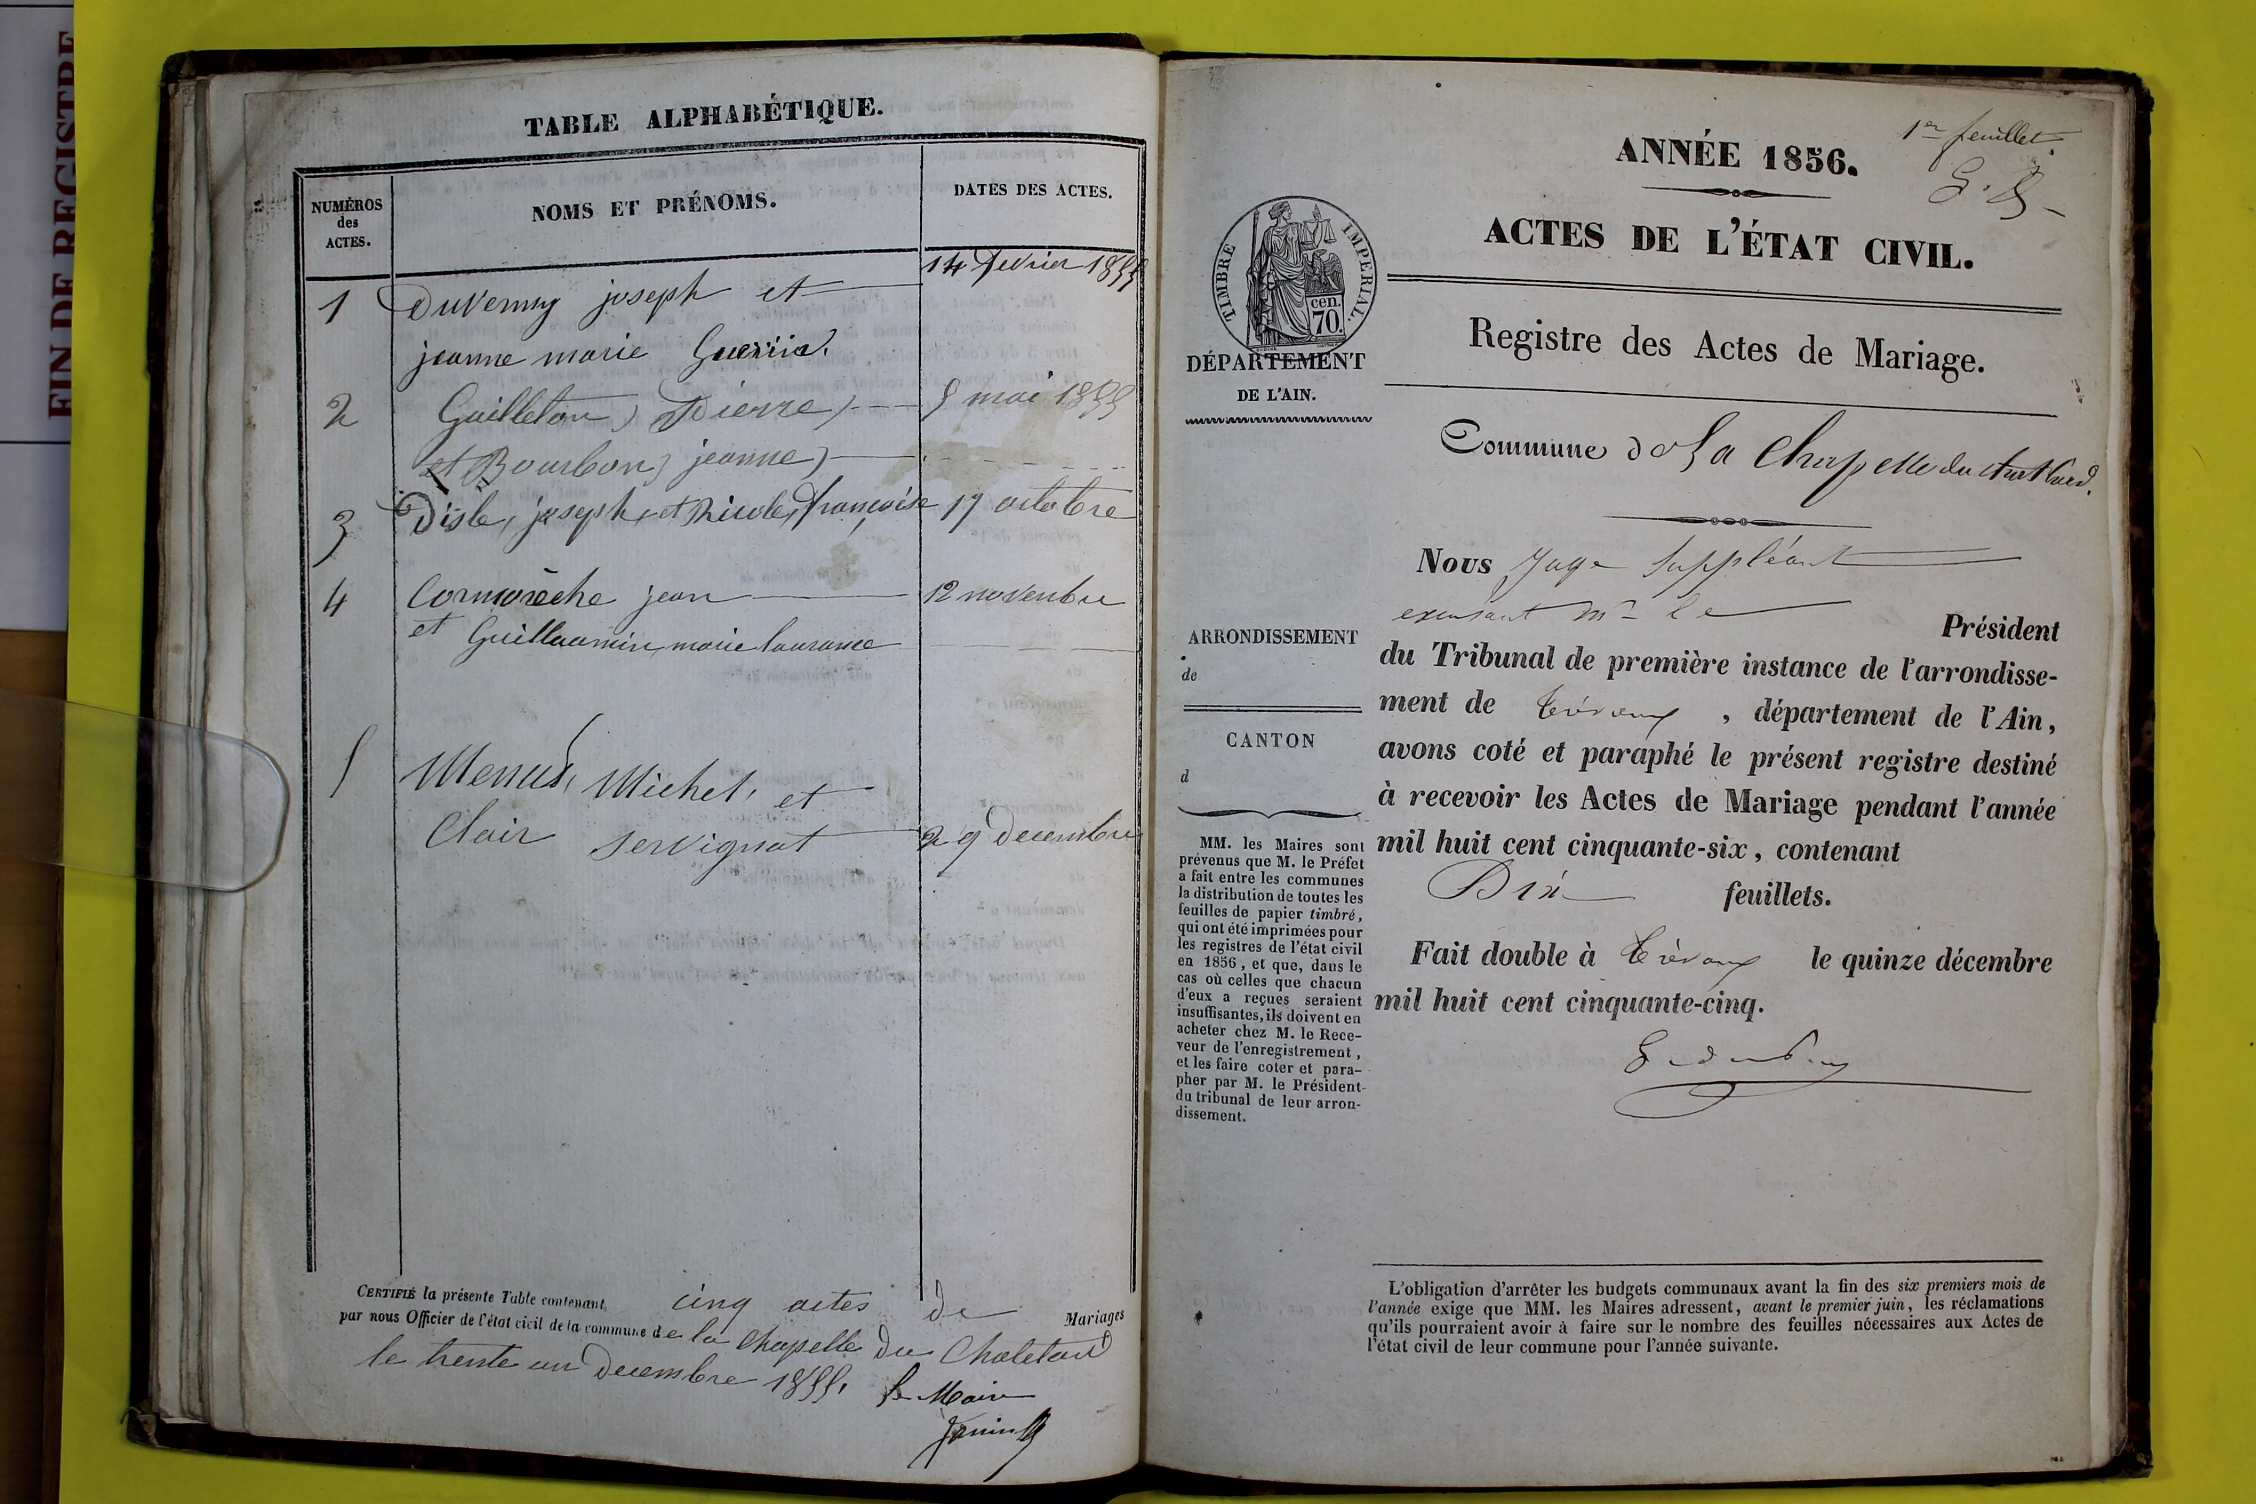 FIN DE REGISTRE
TABLE ALPHABÉTIQUE.
NUMÉROS
des
ACTES.
NOMS ET PRÉNOMS.
DATES DES ACTES.
1 Duvernay joseph et 14 fevrier 1855
jeanne marie
2 Guilleton Pierre 5 mai 1855
et Bourbon jeanne
3 Disle, joseph, et Nicole, françoise 17 octobre
4 Cormorèche jean 12 novembre
et Guillaumin marie laurance
5 Menus, Michel, et
Clair servignat 29 decembre
CERTIFIÉ la présente Table contenant cinq actes de Mariages
par nous Officier de l'état civil de la commune de la Chapelle du Chatelard
le trente un Decembre 1855, le Maire
1er feuillet.
ANNÉE 1856.
ACTES DE L'ÉTAT CIVIL.
TIMBRE IMPERIAL.
cen.
70.
DÉPARTEMENT
DE L'AIN.
Registre des Actes de Mariage.
Commune de La Chapelle du Chatelard.
Nous Juge Suppléant
Mr le Président
du Tribunal de première instance de l'arrondisse-
ment de Trévoux, département de l'Ain,
avons coté et paraphé le présent registre destiné
à recevoir les Actes de Mariage pendant l'année
mil huit cent cinquante-six, contenant
Dix feuillets.
Fait double à Trévoux le quinze décembre
mil huit cent cinquante-cinq.
ARRONDISSEMENT
de
CANTON
d
MM. les Maires sont
prévenus que M. le Préfet
a fait entre les communes
la distribution de toutes les
feuilles de papier timbré,
qui ont été imprimées pour
les registres de l'état civil
en 1856, et que, dans le
cas où celles que chacun
d'eux a reçues seraient
insuffisantes, ils doivent en
acheter chez M. le Rece-
veur de l'enregistrement,
et les faire coter et para-
pher par M. le Président
du tribunal de leur arron-
dissement.
L'obligation d'arrêter les budgets communaux avant la fin des six premiers mois de
l'année exige que MM. les Maires adressent, avant le premier juin, les réclamations
qu'ils pourraient avoir à faire sur le nombre des feuilles nécessaires aux Actes de
l'état civil de leur commune pour l'année suivante.